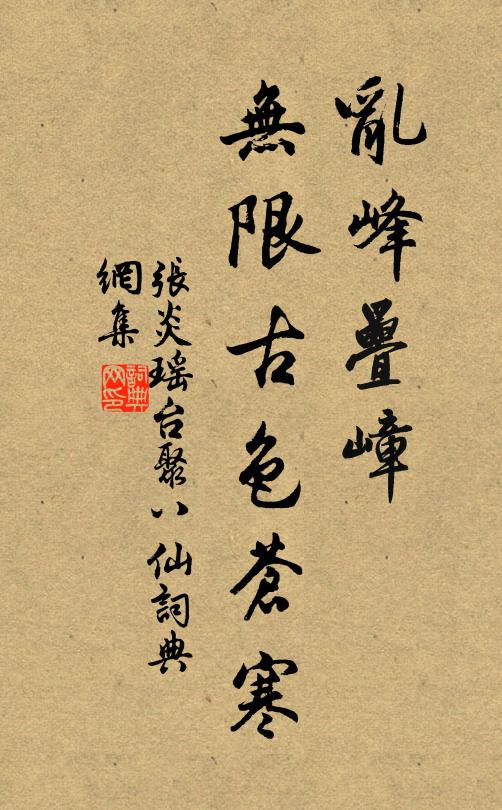 亂峰疊嶂
無限古色蒼寒
張炎瑶台聚八仙詞典
網集
詞典
网印